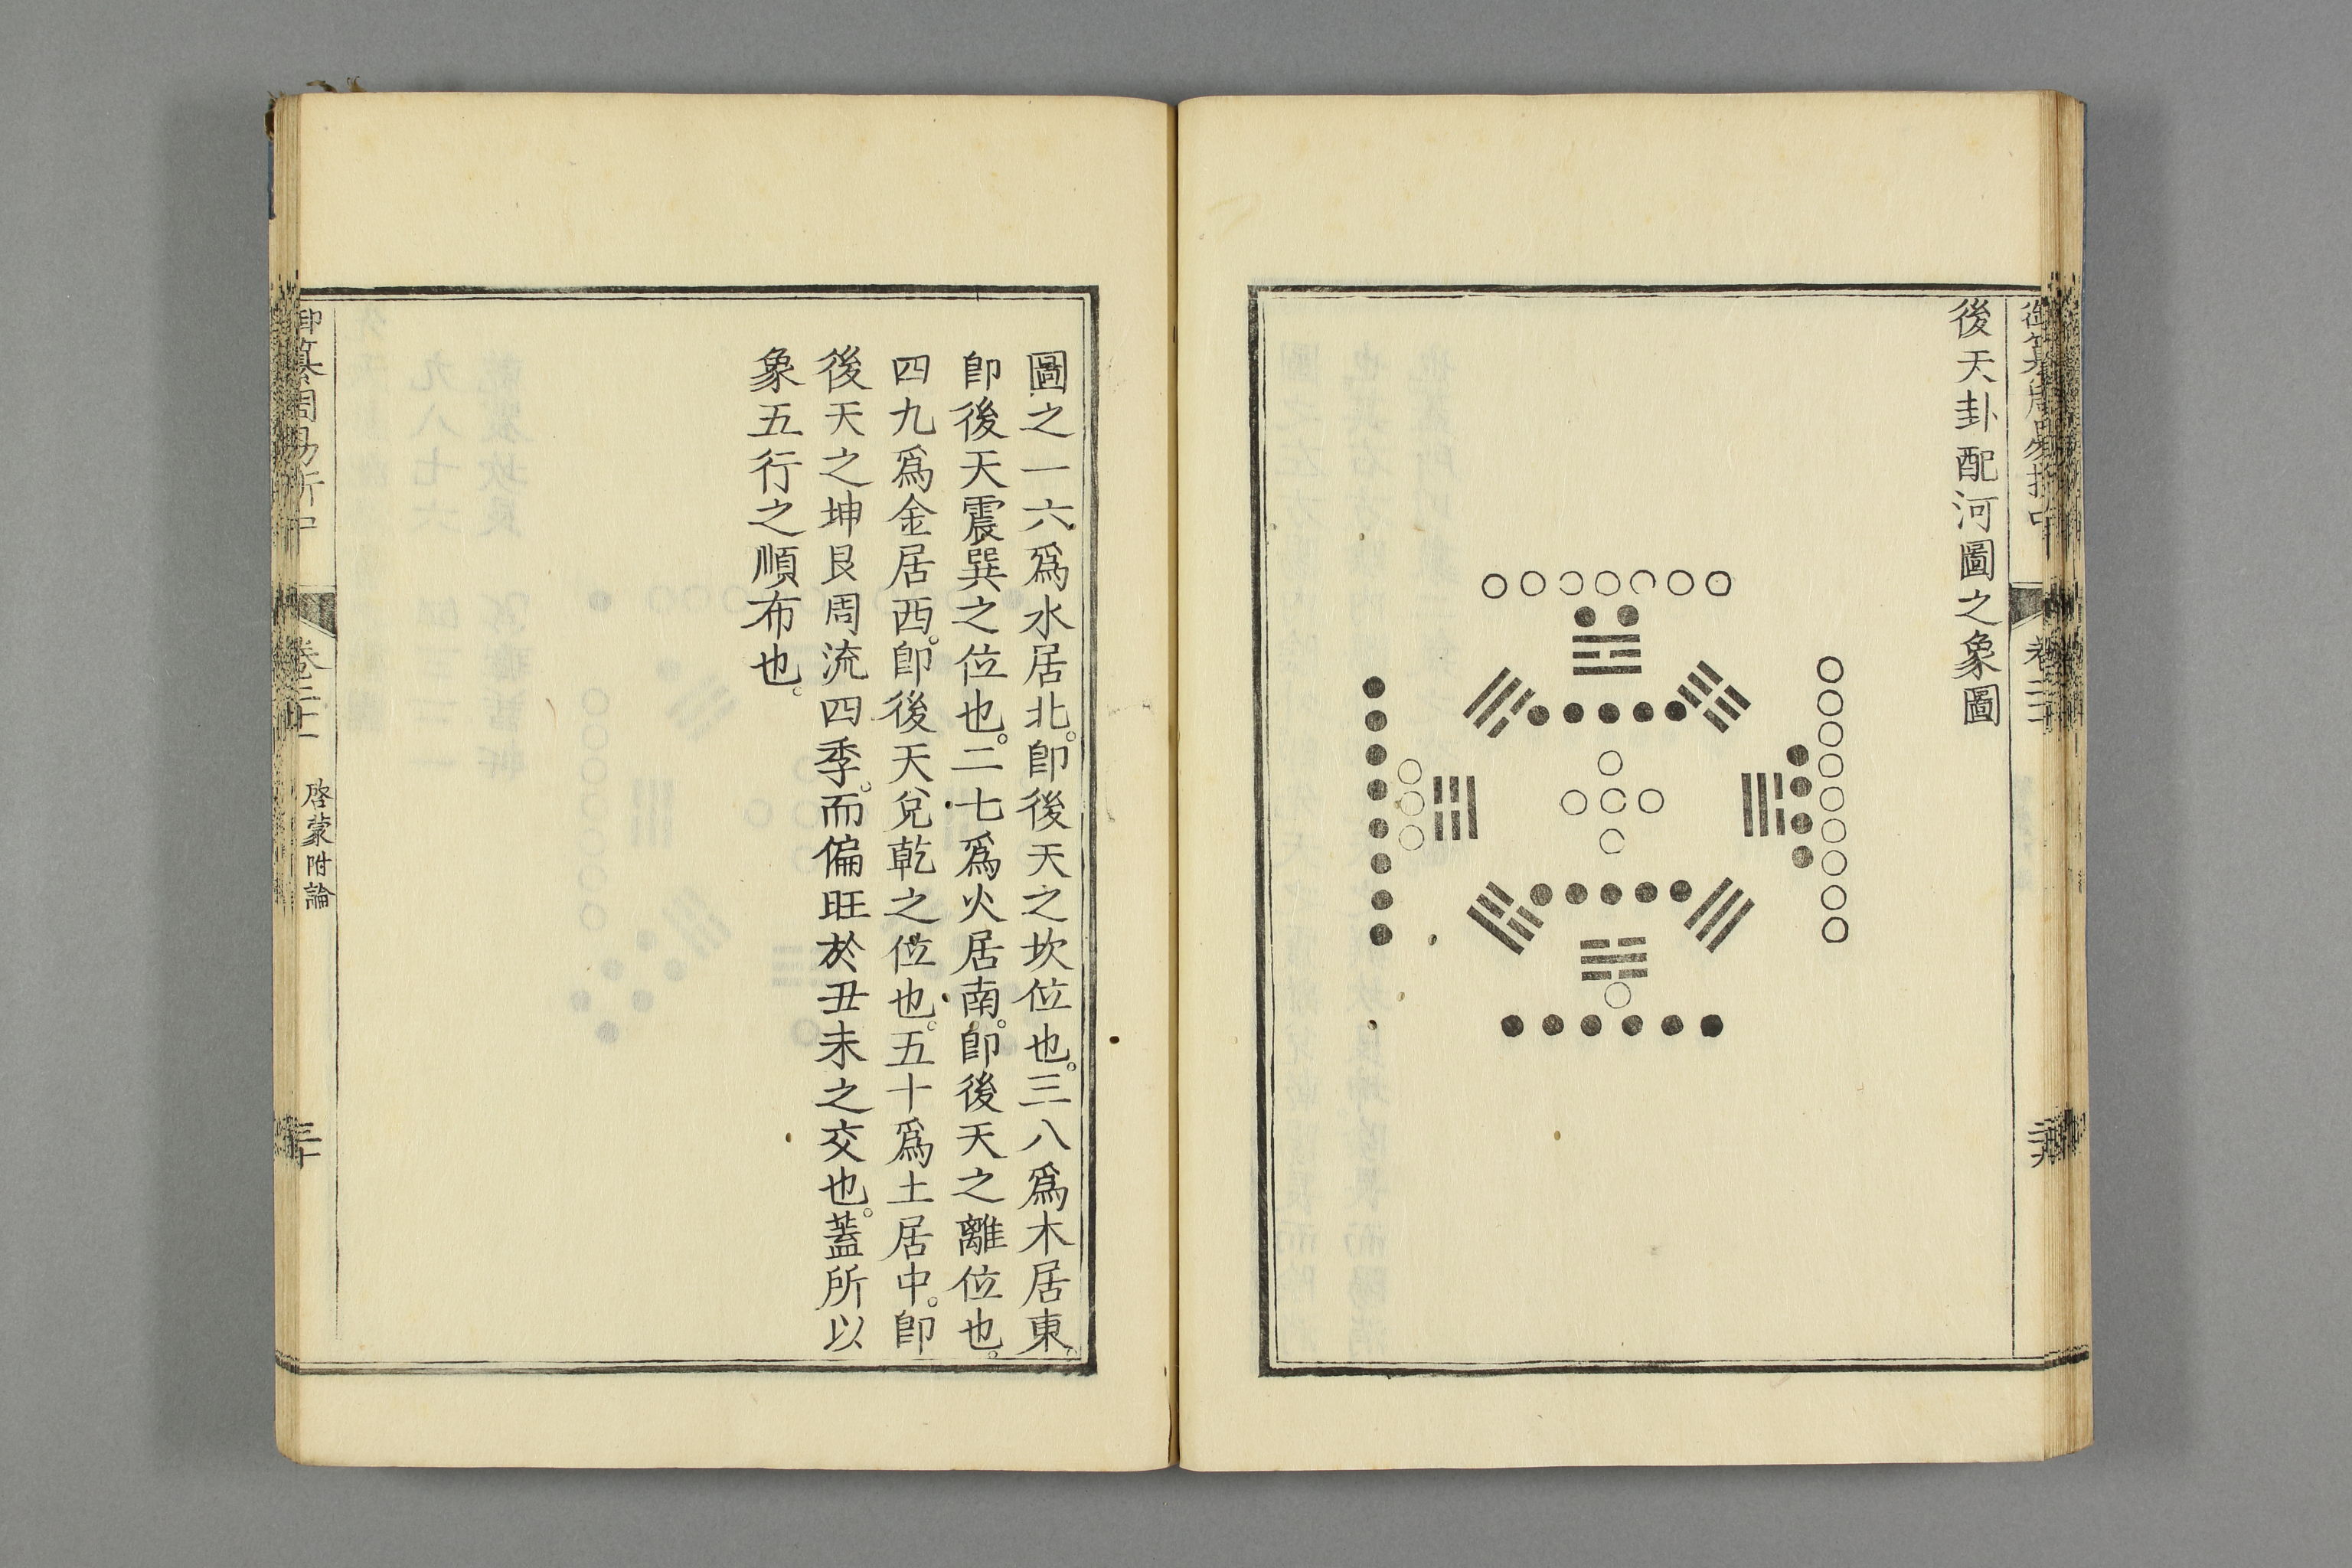 後天卦配河圖之象圖
圖之一六爲水居北。卽後天之坎位也。三八爲木居東。
卽後天震巽之位也。二七爲火居南。卽後天之離位也。
四九爲金居西。卽後天兌乾之位也。五十爲土居中。卽
後天之坤艮周流四季。而偏旺於丑未之交也。蓋所以
象五行之順布也。
御纂周易折中
啓蒙附論
三十